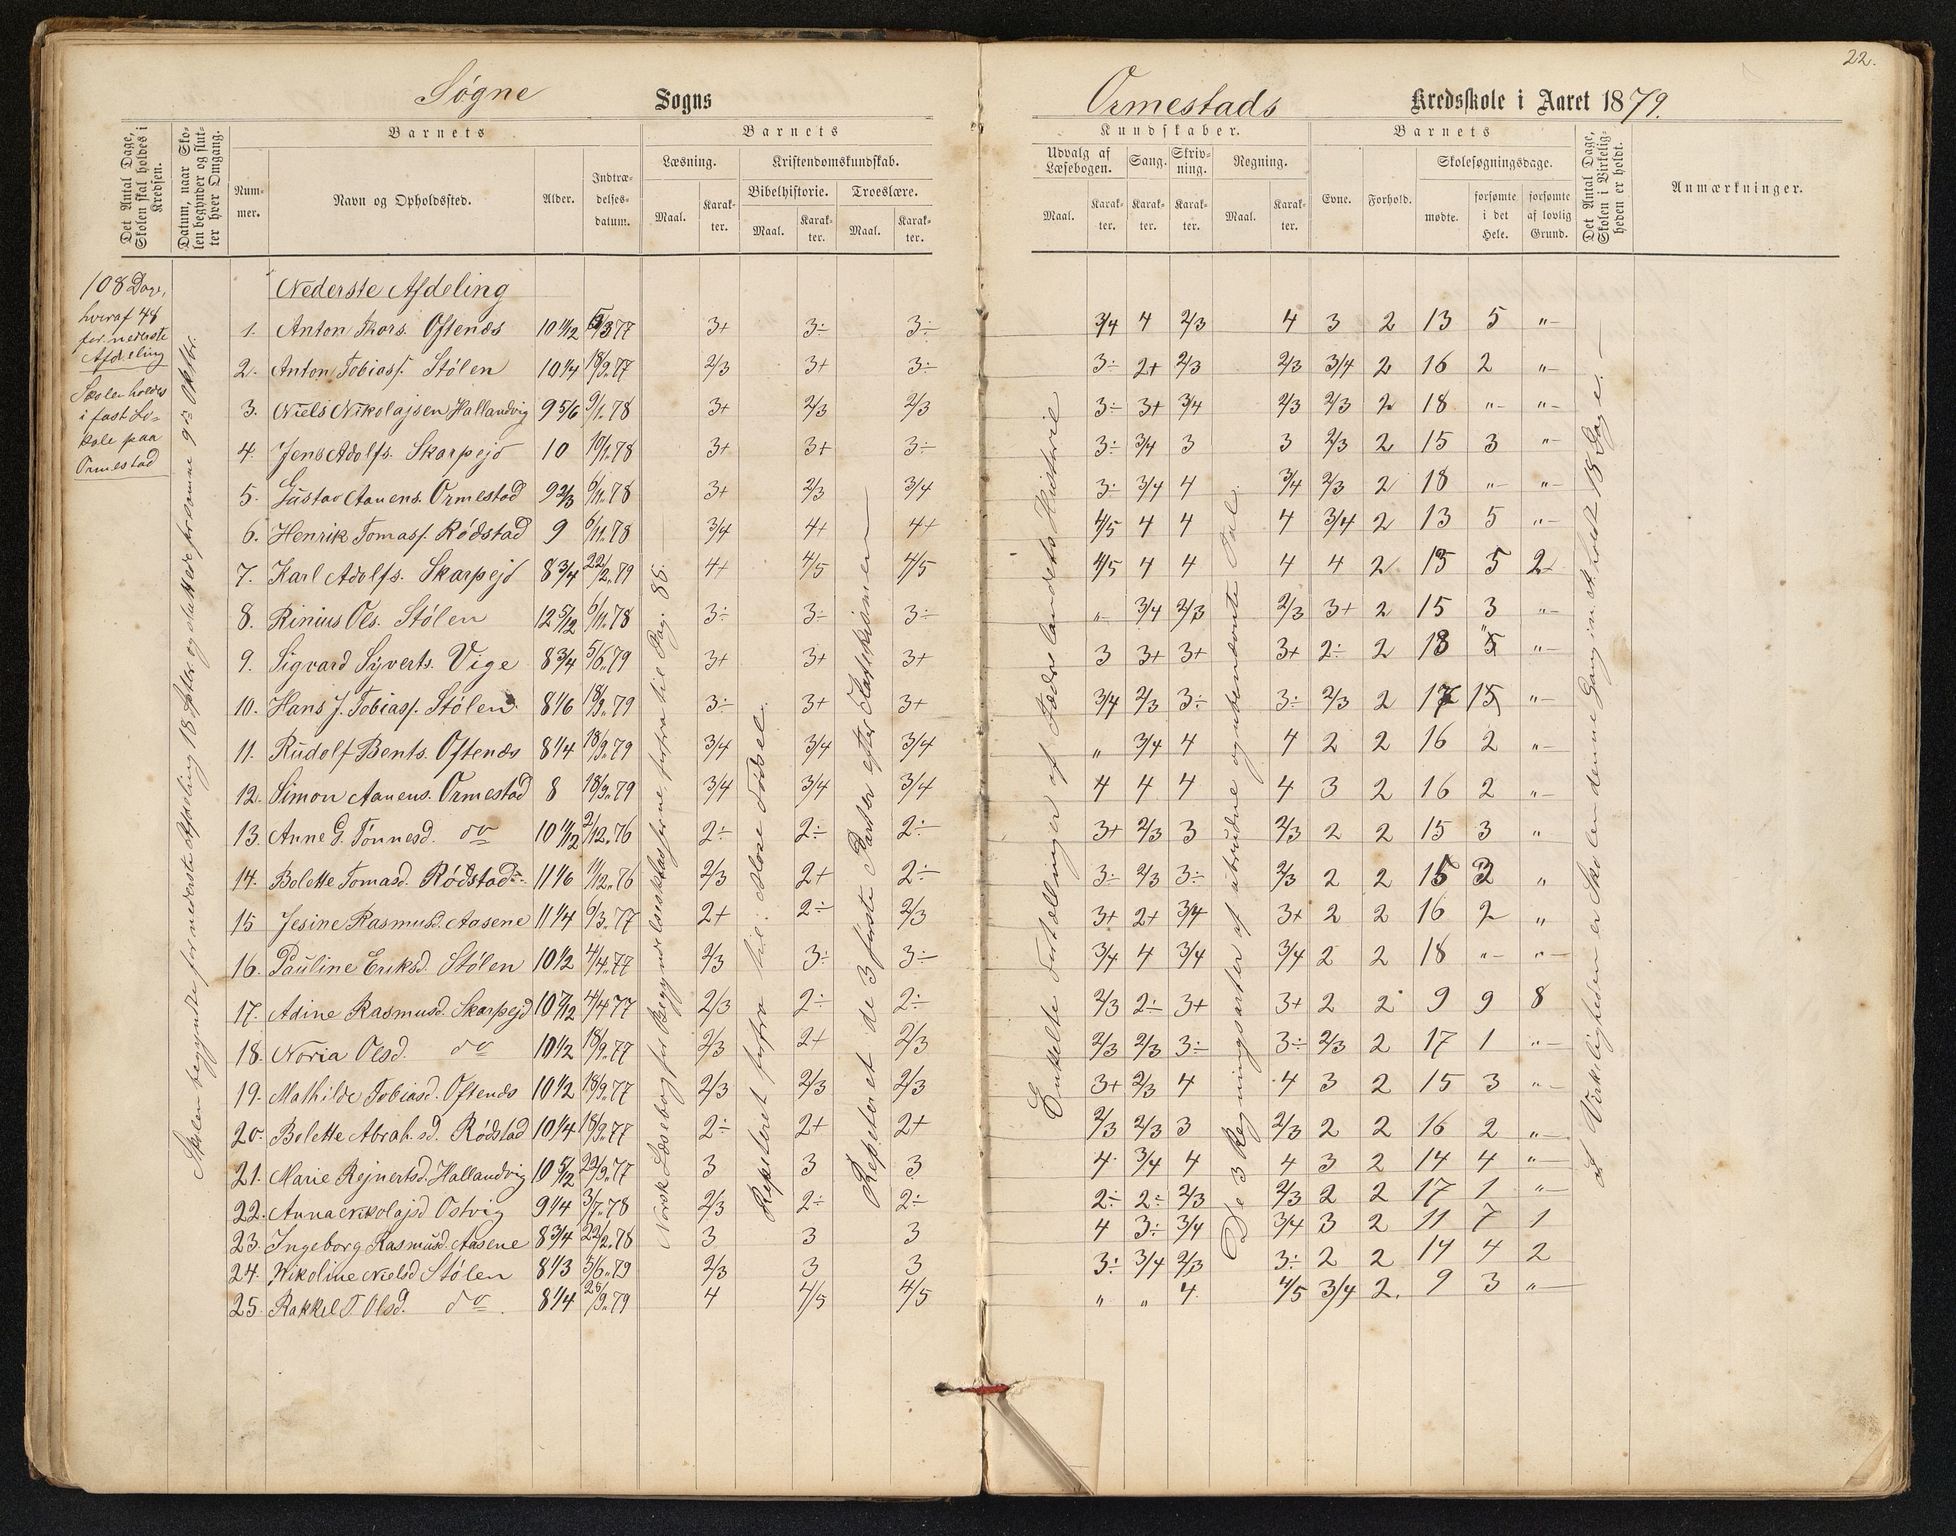 22.
Søgne Sogns
Ormestads Kredsskole i Aaret 1879.
Det Antal Dage, Skolen skal holdes i Kredsen.
Datum, naar Skolen begynder og slutter hver Omgang.
Barnets
Nummer.
Navn og Opholdssted.
Alder.
Indtrædelsesdatum.
Barnets
Læsning.
Maal.
Karakter.
Kristendomskundskab.
Bibelhistorie.
Maal.
Karakter.
Troeslære.
Maal.
Karakter.
Kundskaber.
Udvalg af Læsebogen.
Maal.
Karakter.
Sang.
Karakter.
Skrivning.
Karakter.
Regning.
Maal.
Karakter.
Barnets
Evne.
Forhold.
Skolesøgningsdage.
mødte.
forsømte i det Hele.
forsømte af lovlig Grund.
Det Antal Dage, Skolen i Virkeligheden er holdt.
Anmærkninger.
108 Dage,
hvoraf 48
for nederste
Afdeling
Skolen holdes
i fast Lo-
kale paa
Ormestad
Skolen begyndte for nederste Afdeling 18 Septbr. og sluttede fremme 9de Oktbr.
Norsk Læsebog for Begyndelsesklasserne, forfra til Pag. 88.
Repeteret forfra til: Mose Fødsel.
Repeteret de 3 første Parter efter Katekismen
Enkelte Fortællinger af Fædrelandets Historie
De 3 Regningsarter af ubenævnte og benævnte Tal.
I Virkeligheden er Skolen denne Gang in. A. holdt 18 Dage.
Nederste Afdeling
1. Anton Thors. Oftenæs 10 11/12 5/3 77 3+ 3÷ 3÷ 3/4 4 2/3 4 3 2 13 5 "
2. Anton Tobiass. Stølen 10 1/4 18/9.77 2/3 3+ 3÷ 3÷ 2+ 2/3 2/3 3/4 2 16 2 "
3. Niels Nikolajsen Hallandvig 9 5/6 9/1.78 3+ 2/3 2/3 3÷ 3+ 3/4 2/3 2/3 2 18 " "
4. Jens Adolfs. Skarpejd 10 10/1.78 3+ 3+ 3÷ 3÷ 3/4 3 3 2/3 2 15 3 "
5. Gustav Aanens. Ormestad 9 2/3 6/11.78 3+ 2/3 3/4 3÷ 3/4 4 3/4 2/3 2 18 " "
6. Henrik Tomass. Rødstad 9 6/11.78 3/4 4+ 4+ 4/5 4 4 4 3/4 2 13 5 "
7. Karl Adolfs. Skarpejd 8 3/4 22/2.79 4+ 4/5 4/5 4/5 4 4 4 4 2 13 5 2
8. Rinius Ols. Stølen 12 5/12 6/11.78 3÷ 3÷ 3÷ " 3/4 2/3 2/3 3+ 2 15 3 "
9. Sigvard Syverts. Vige 8 3/4 5/6.79 3+ 3+ 3+ 3 3+ 3+ 3+ 2÷ 2 18 " "
10. Hans J. Tobiass. Stølen 8 1/6 18/9.79 3÷ 3+ 3+ 3/4 2/3 3÷ 3÷ 2/3 2 17 1 "
11. Rudolf Bents. Oftenæs 8 1/4 18/9.79 3/4 3/4 3/4 " 3/4 4 4 2 2 16 2 "
12. Simon Aanens. Ormestad 8 18/9.79 3/4 3/4 3/4 4 4 4 4 3 2 16 2 "
13. Anne G. Tønnesd. do 10 11/12 2/12.76 2÷ 2÷ 2÷ 3+ 2/3 3 2/3 2 2 15 3 "
14. Bolette Tomasd. Rødstad 11 1/6 1/12.76 2/3 2+ 2÷ 3÷ 2/3 3÷ 2/3 2 2 15 3 "
15 Jesine Rasmusd. Aasene 11 1/4 6/3.77 2+ 2÷ 2/3 3+ 2+ 3/4 3+ 2 2 16 2 "
16. Pauline Eriksd. Stølen 10 1/2 4/4.77 2/3 3÷ 3÷ 3/4 4 3/4 3/4 2 2 18 " "
17. Adine Rasmusd. Skarpejd 10 7/12 4/4 77 2/3 2÷ 2÷ 2/3 2÷ 3+ 3+ 2 2 9 9 8
18. Noria Olsd. do 10 1/2 18/9.77 2/3 2+ 2/3 2/3 2/3 3÷ 3÷ 2/3 2 17 1 "
19. Mathilde Tobiasd. Oftenæs 10 1/2 18/9.77 2/3 2/3 2/3 3+ 2/3 4 4 3 2 15 3 "
20. Bolette Abrah.sd. Rødstad 10 1/4 18/9.77 2÷ 2+ 2+ 2/3 2/3 3 2/3 2 2 16 2 "
21. Marie Rejnertsd. Hallandvig 10 5/12 22/9.77 3 3 3 4 3/4 4 4 3 2 14 4 "
22. Anna Nikolajsd Ostvig 9 1/4 3/7.78 2/3 2÷ 2÷ 2÷ 2÷ 2/3 2/3 2 2 17 1 "
23. Ingeborg Rasmusd. Aasene 8 3/4 22/2.78 3 3 3 4 3÷ 3/4 3/4 3 2 11 7 1
24. Nikoline Nielsd Stølen 8 1/3 5/6.79 2/3 3 3 3÷ 3/4 2/3 3÷ 2 2 14 4 2
25. Rakkel T Olsd. do 8 1/4 26/9.79 4 4/5 4/5 " " 4 4/5 3/4 2 9 3 "